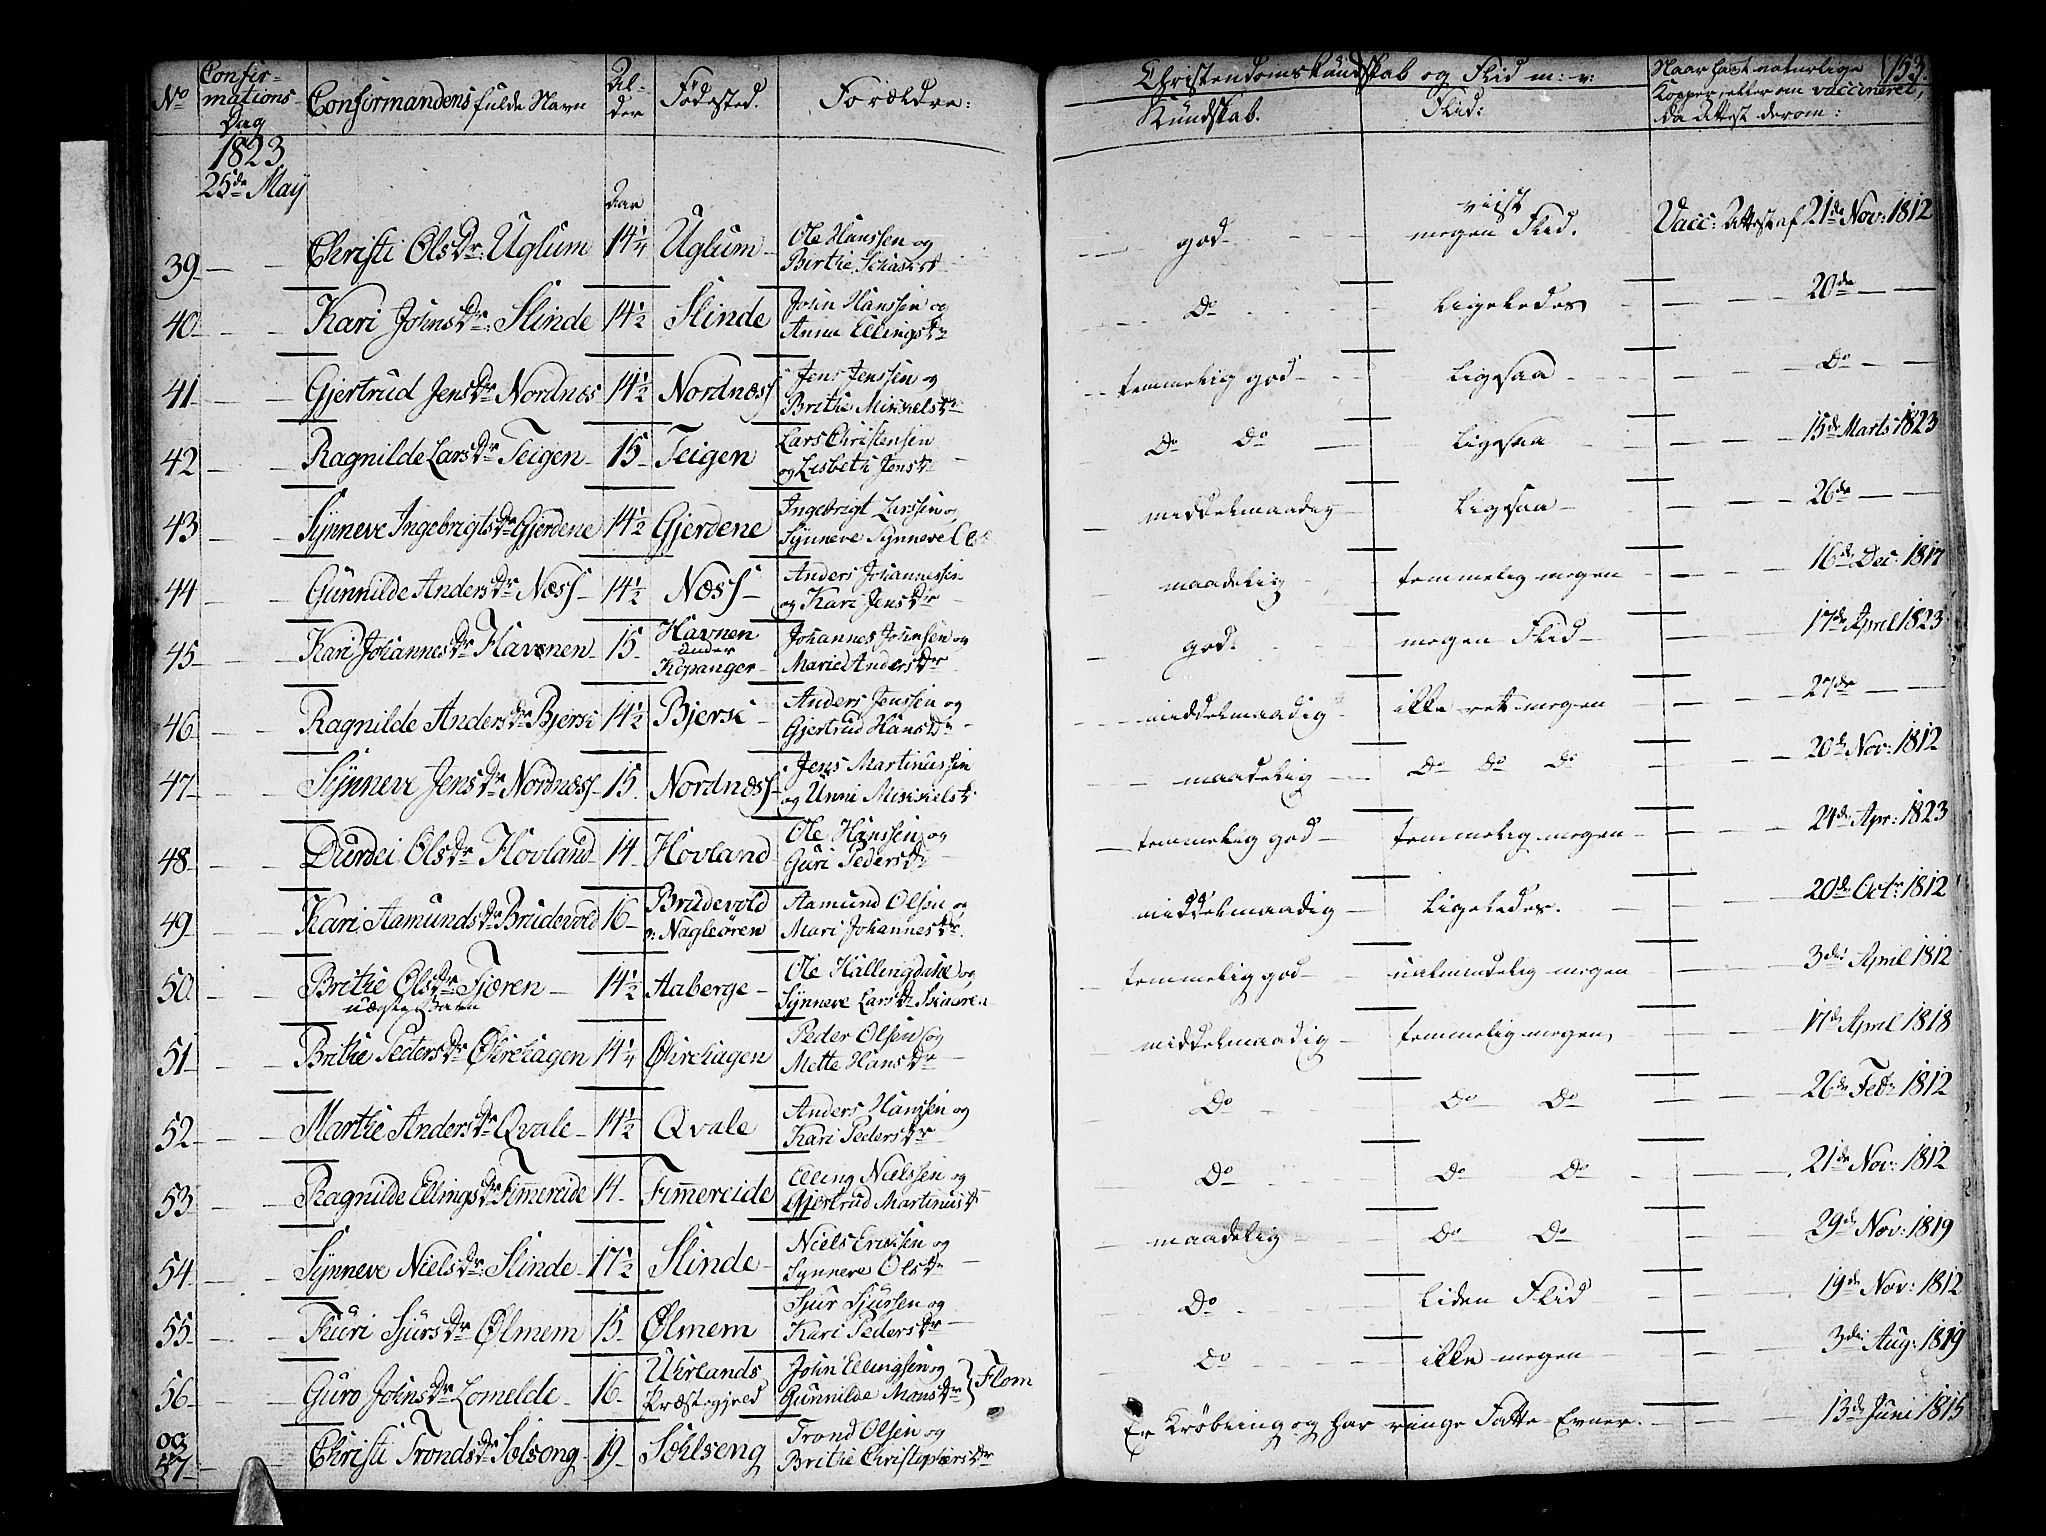 No Confirmations Dag Confirmandens fulde Navn Alder Fødested. Forældre: Christendomskundskab og Flid m: v: Kundskab. Flid: Naar havt naturlige Kopper, eller om vaccineret, da Attest derom: 153.
1823
25de May
Aar
39 Christi OlsDr: Uglum 14¼ Uglum Ole Hanssen og Birthe god viist megen Flid. Vacc: Attest af 21de Nov: 1812
40 Kari JohnsDr: Slinde 14½ Slinde John Hanssen og Anna EllingsDr Do ligeledes 20de
41 Gjertrud JensDr Nordnes 14½ Nordnæss Jens Jenssen og Brithe MikkelsDr temmelig god ligesaa Do
42 Ragnilde LarsDr Teigen 15 Teigen Lars Christensen og Lisbeth JensDr Do Do ligesaa 15de Marts 1823
43 Synneve IngebrigtsDr Gjerdene 14½ Gjerdene Ingebrigt Larssen og Synneve Synneve Ols middelmaadig ligesaa 26de
44 Gunnilde AndersDr Næss 14½ Næss Anders Johannessen og Kari JensDr maadelig temmelig megen 16de Dec: 1817
45 Kari JohannesDr Havnen 15 Havnen under Kopanger Johannes Johnsen og Marie AndersDr god. megen Flid 17de April 1823
46 Ragnilde AndersDr Bjerk 14½ Bjerk Anders Jenssen og Gjertrud HansDr middelmaadig ikke ret megen 27de
47 Synneve JensDr Nordnæss 15 Nordnæss Jens Martinussen og Unni MikkelsDr maadelig Do Do Do 20de Nov: 1812
48 Durdei OlsDr Hovland 14 Hovland Ole Hanssen og Guri PedersDr temmelig god temmelig megen 24de Apr: 1823
49 Kari AamundsDr Brudevold 16 Brudevold Nagleören Aamund Olsen og Mari JohannesDr. middelmaadig ligeledes. 20de Octr: 1812
50 Brithe OlsDr Tjøren uægte Barn 14½ Aaberge Ole Hallingdahl og Synneve LarsDr temmelig god ualmindelig megen 3die April 1812
51 Brithe PedersDr Øirehagen 14¼ Øirehagen Peder Olsen og Mette HansDr middelmaadig temmelig megen 17de April 1818
52 Marthe AndersDr Qvale 14½ Qvale Anders Hanssen og Kari PedersDr Do Do Do 26de Febr: 1812
53 Ragnilde EllingsDr Fimreeide 14 Fimreeide Elling Nielssen og Gjertrud MartinusDr Do Do Do 21de Nov: 1812
54 Synneve NielsDr: Slinde 17½ Slinde Niels Eriksen og Synneve OlsDr maadelig Do Do 29de Nov: 1819
55 Turi SjursDr Ølmem 15 Ølmem Sjur Sjurssen og Kari PedersDr Do liden Flid 19de Nov: 1812
56 Guro JohnsDr Lomelde 16 Uhrlands Præstegjeld John Ellingsen og Gunnilde MansDr } Flom Do ikke megen 3die Aug: 1819
og 57 Christi TrondsDr Solsong 19 Sohlseng Trond Olsen og Brithe ChristophersDr Er Krøbling og har ringe Fatte-Evner. 13de Juni 1815